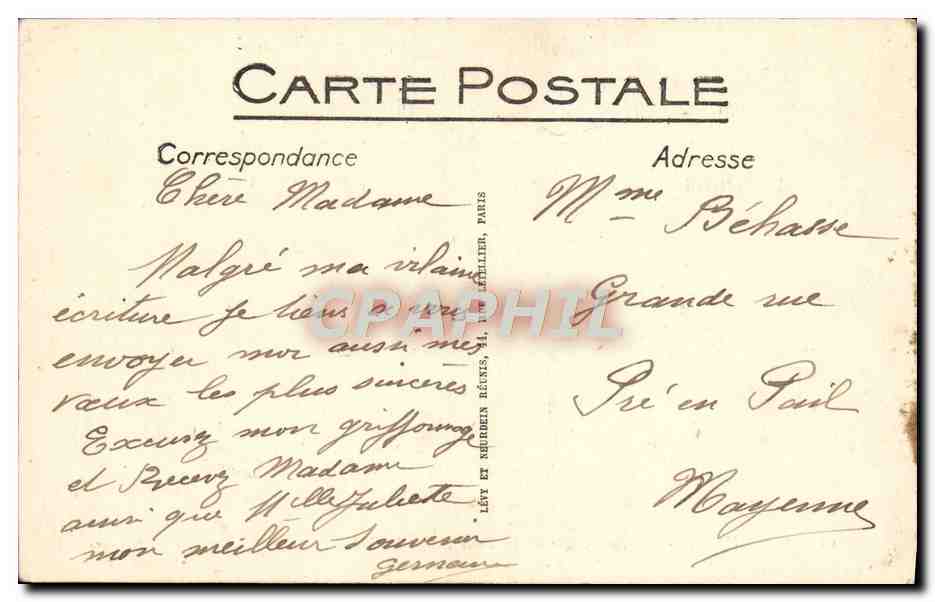 CARTE POSTALE
Correspondance
Chère Madame
Malgré ma vilaine
écriture je tiens a vous
envoyer moi aussi mes
vœux les plus sincères
Excusez mon griffonnage
et Recevez Madame
ainsi que Mlle Juliette
mon meilleur Souvenir
germaine
LÉVY ET NEURDEIN RÉUNIS, 44, RUE LETELLIER, PARIS
Adresse
Mme Béhasse
Grande rue
Pré en Pail
Mayenne
CPAPHIL